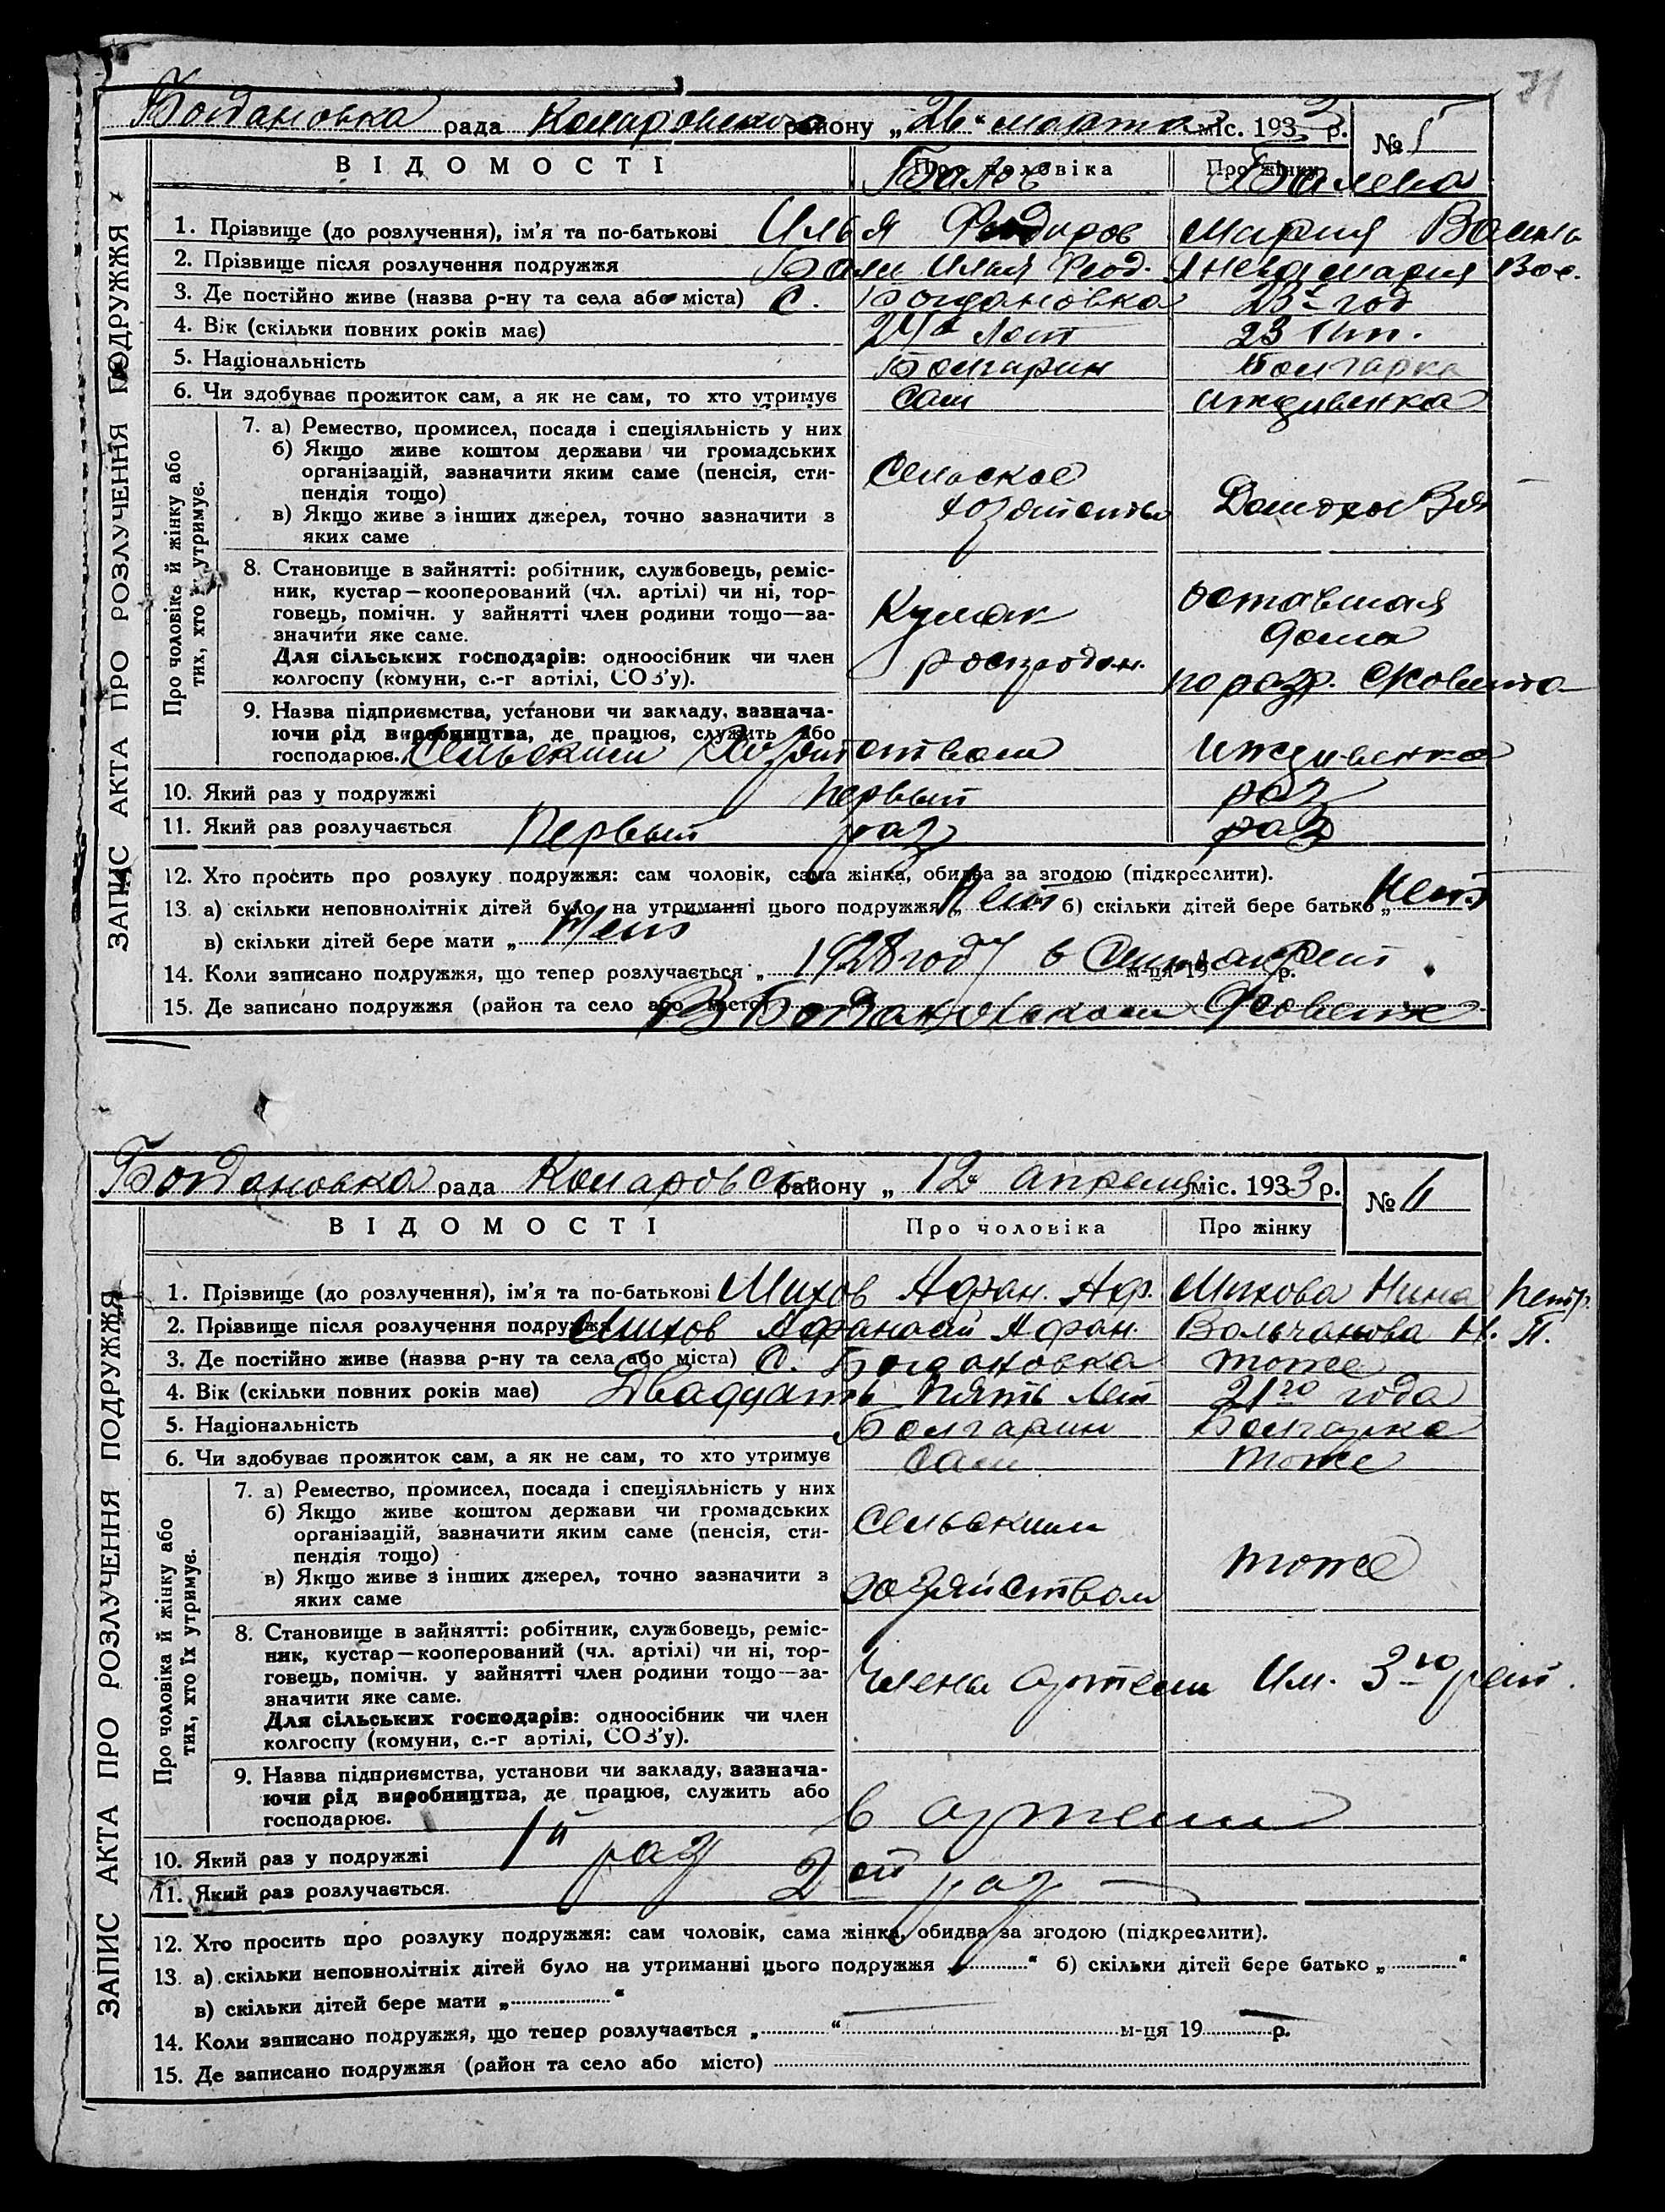 71
Богдановка рада Комаровского району „ 26 “ марта міс. 1933 р. № 5
ВІДОМОСТІ Про чоловіка Про жінку
1. Прізвище (до розлучення), ім'я та по-батькові Илья Феодоров Мария
2. Прізвище після розлучення подружжя Илья Феод. Мария Вас.
3. Де постійно живе (назва р-ну та села або міста) С. Богдановка 23 год
4. Вік (скільки повних років має) 24 лет 23 лет.
5. Національність Болгарин Болгарка
6. Чи здобуває прожиток сам, а як не сам, то хто утримує Сам иждивенка
7. а) Ремество, промисел, посада і спеціяльність у них
б) Якщо живе коштом держави чи громадських
організацій, зазначити яким саме (пенсія, сти-
пендія тощо) Сельское
в) Якщо живе з інших джерел, точно зазначити з хозяйство
яких саме
8. Становище в зайнятті: робітник, службовець, реміс-
ник, кустар—кооперований (чл. артілі) чи ні, тор-
говець, помічн. у зайнятті член родини тощо—за- Кулак оставшая
значити яке саме. дома
Для сільських господарів: одноосібник чи член
колгоспу (комуни, с.-г артілі, СОЗ'у). роспродан. по разр. с/совета
9. Назва підприємства, установи чи закладу, зазнача-
ючи рід виробництва, де працює, служить або
господарює. Сельским Хозяйством иждивенка
10. Який раз у подружжі первый раз
11. Який раз розлучається первый раз раз
12. Хто просить про розлуку подружжя: сам чоловік, сама жінка, обидва за згодою (підкреслити).
13. а) скільки неповнолітніх дітей було на утриманні цього подружжя „ Нет б) скільки дітей бере батько „ Нет
в) скільки дітей бере мати „ Нет
14. Коли записано подружжя, що тепер розлучається „ 1928 году в м-ця 19 р.
15. Де записано подружжя (район та село або місто) В Богдановском с/совете
ЗАПИС АКТА ПРО РОЗЛУЧЕННЯ ПОДРУЖЖЯ
Про чоловіка й жінку або
тих, хто їх утримує.
Богдановка рада Комаровск району „ 12 апреля міс. 1933 р. № 6
ВІДОМОСТІ Про чоловіка Про жінку
1. Прізвище (до розлучення), ім'я та по-батькові Михов Афан. Аф. Михова Нина Петр.
2. Прізвище після розлучення подружжя Михов Афанасий Афан. Вольчанова Н. П.
3. Де постійно живе (назва р-ну та села або міста) С. Богдановка тоже
4. Вік (скільки повних років має) Двадцать пять лет 21го года
5. Національність Болгарин Болгарка
6. Чи здобуває прожиток сам, а як не сам, то хто утримує Сам тоже
7. а) Ремество, промисел, посада і спеціяльність у них
б) Якщо живе коштом держави чи громадських Сельским
організацій, зазначити яким саме (пенсія, сти-
пендія тощо) тоже
в) Якщо живе з інших джерел, точно зазначити з хозяйством
яких саме
8. Становище в зайнятті: робітник, службовець, реміс-
ник, кустар—кооперований (чл. артілі) чи ні, тор-
говець, помічн. у зайнятті член родини тощо—за- Члены артели Им. 3го реш.
значити яке саме.
Для сільських господарів: одноосібник чи член
колгоспу (комуни, с.-г артілі, СОЗ'у).
9. Назва підприємства, установи чи закладу, зазнача-
ючи рід виробництва, де працює, служить або
господарює. в артели
10. Який раз у подружжі 1й раз
11. Який раз розлучається. раз
12. Хто просить про розлуку подружжя: сам чоловік, сама жінка, обидва за згодою (підкреслити).
13. а) скільки неповнолітніх дітей було на утриманні цього подружжя „ “ б) скільки дітей бере батько „ “
в) скільки дітей бере мати „ “
14. Коли записано подружжя, що тепер розлучається „ “ м-ця 19 р.
15. Де записано подружжя (район та село або місто)
ЗАПИС АКТА ПРО РОЗЛУЧЕННЯ ПОДРУЖЖЯ
Про чоловіка й жінку або
тих, хто їх утримує.